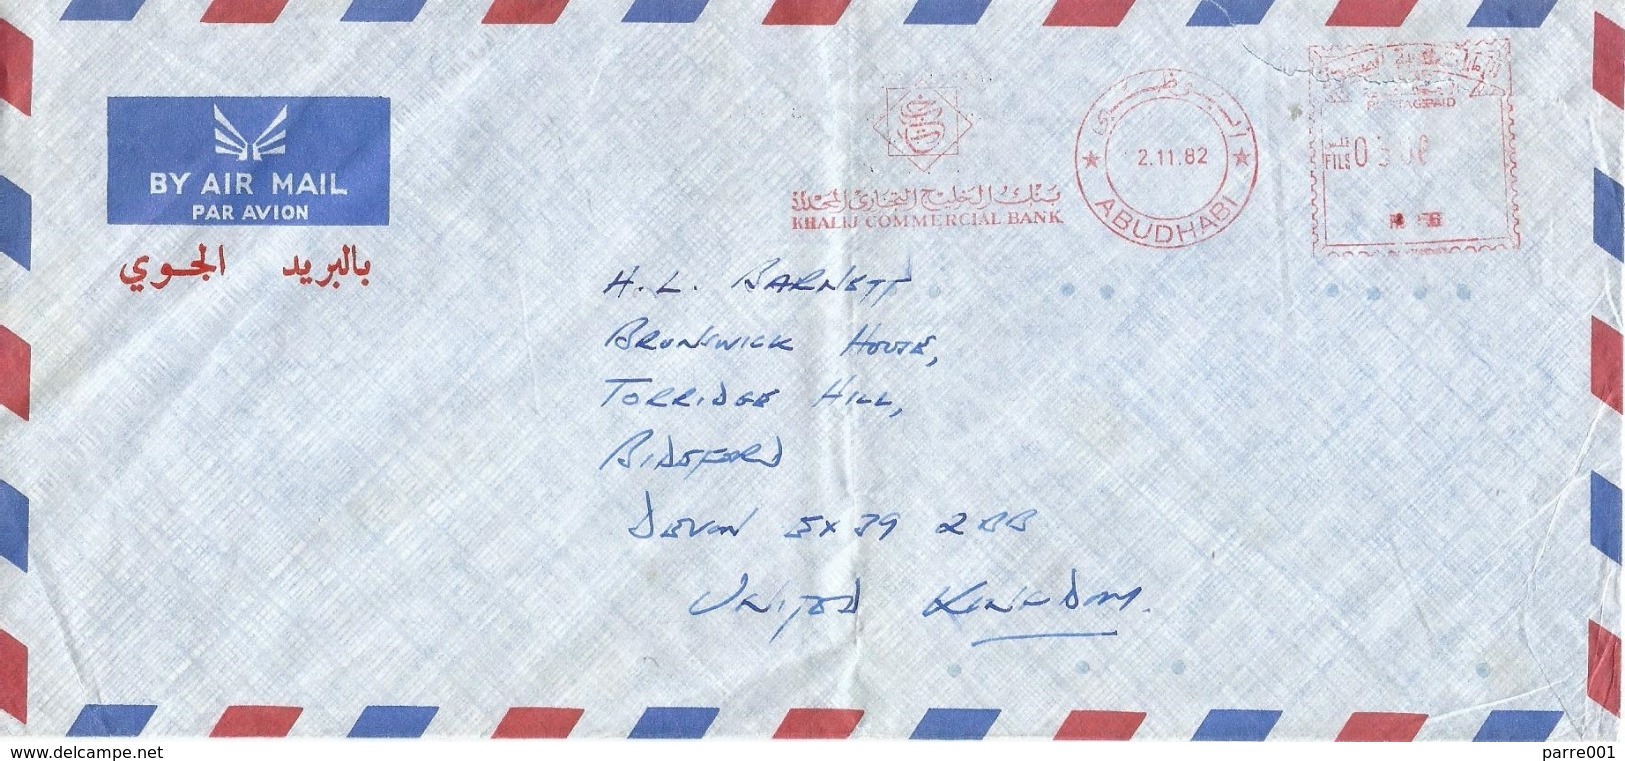 BY AIR MAIL
PAR AVION
بالبريد الجوي
بنك الخليج التجاري المحدد
KHALIJ COMMERCIAL BANK
أبوظبي
2.11.82
ABUDHABI
POSTAGE PAID
فلس
FILS
H. L. BARNETT
BRUNSWICK HOUSE,
TORRIDGE HILL,
BIDEFORD
DEVON EX39 2BB
UNITED KINGDOM.
www.delcampe.net
parre001